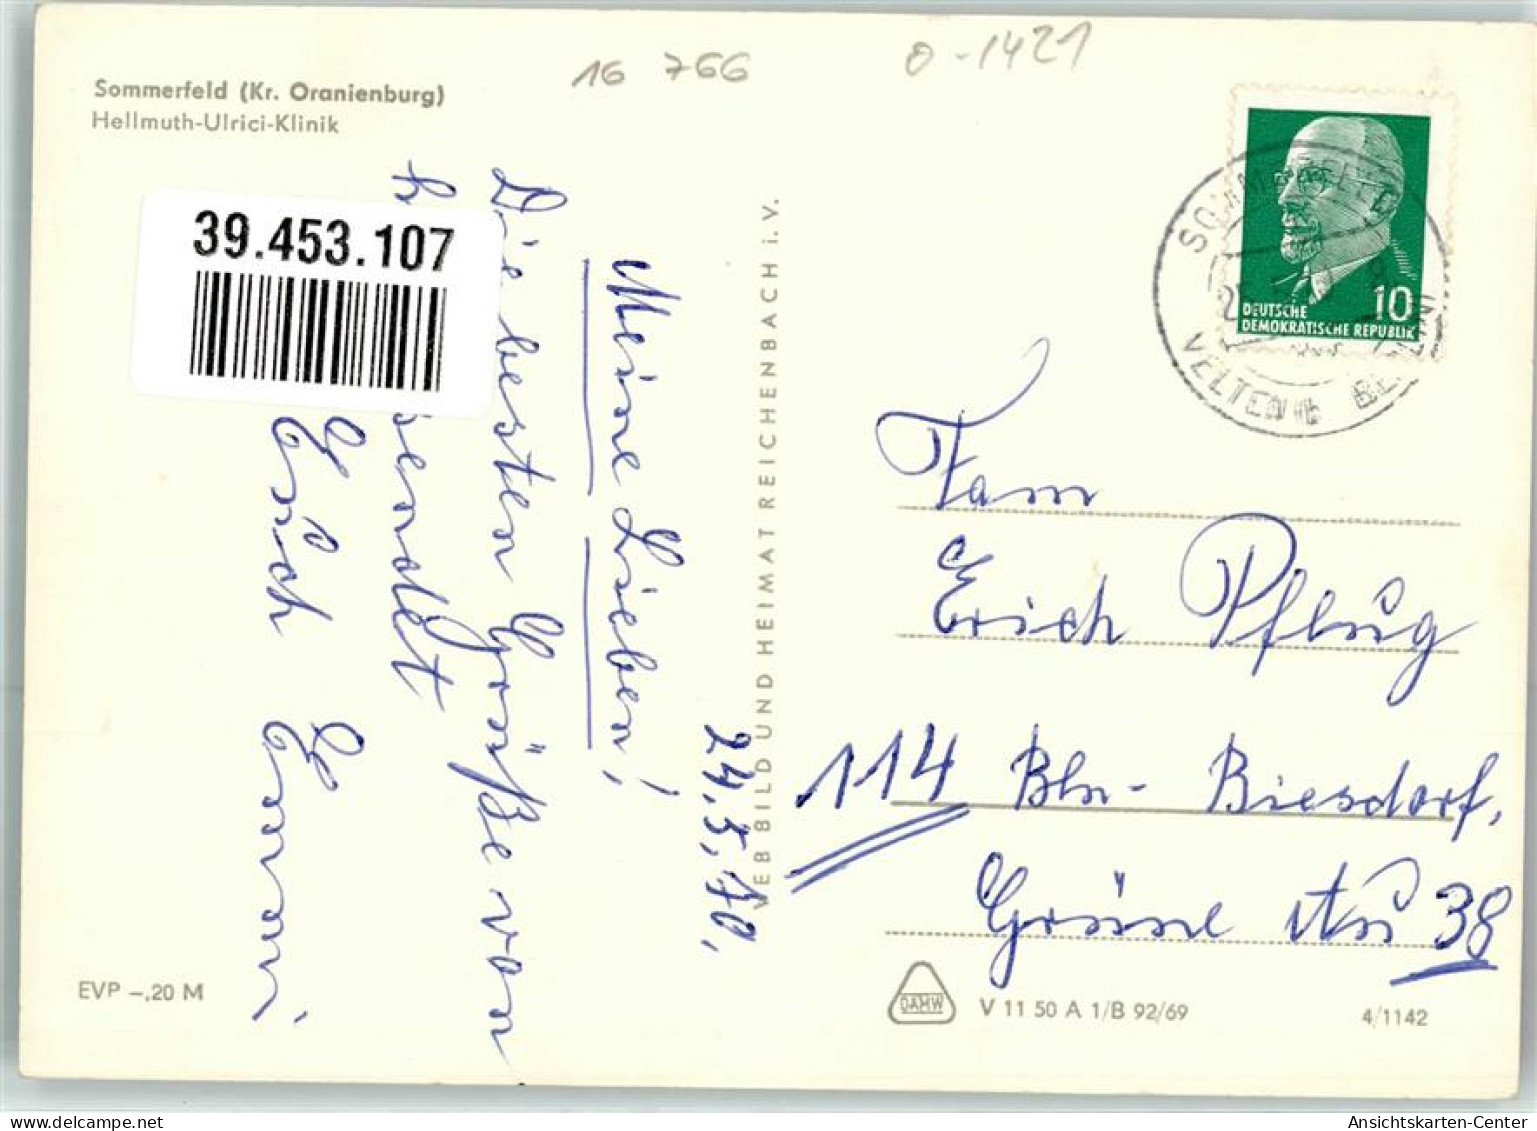 16 766
0-1421
Sommerfeld (Kr. Oranienburg)
Hellmuth-Ulrici-Klinik
39.453.107
24.5.70.
Meine Lieben!
Die besten Grüße von
sendet
Erich
VEB BILD UND HEIMAT REICHENBACH i. V.
DEUTSCHE
DEMOKRATISCHE REPUBLIK
10
SOMMERFELD
VELTEN b BERLIN
Fam
Erich Pflug
114 Bln- Biesdorf,
Grüne Str 38
EVP -,20 M
DAMW
V 11 50 A 1/B 92/69
4/1142
Ansichtskarten-Center